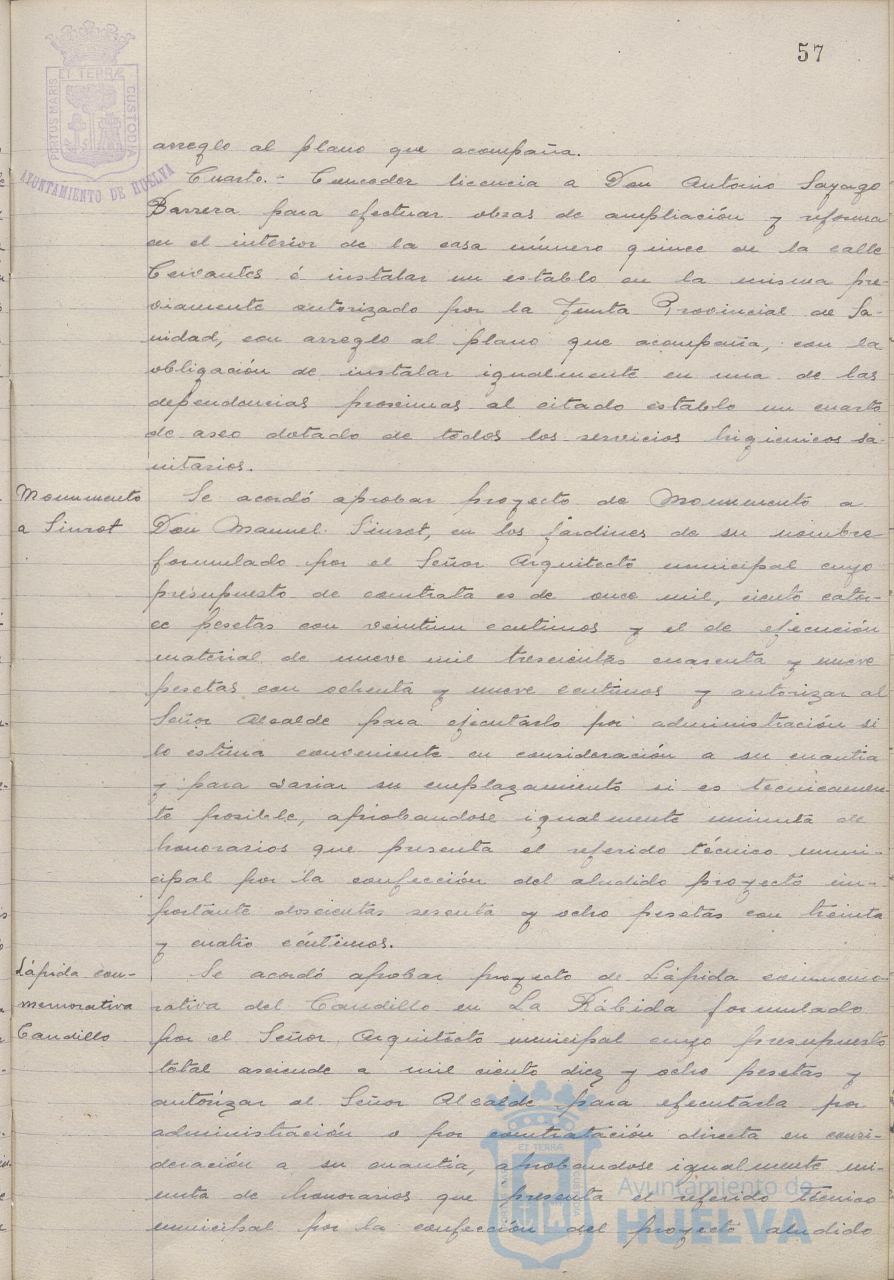 57
PORTUS MARIS ET TERRÆ CUSTODIA
AYUNTAMIENTO DE HUELVA
arreglo al plano que acompaña.
Cuarto.- Conceder licencia a Don Antonio Sayago
Barrera para efectuar obras de ampliación y reforma
en el interior de la casa número quince de la calle
Cervantes é instalar un establo en la misma pre-
viamente autorizado por la Junta Provincial de Sa-
nidad, con arreglo al plano que acompaña, con la
obligación de instalar igualmente en una de las
dependencias proximas al citado establo un cuarto
de aseo dotado de todos los servicios higienicos sa-
nitarios.
Monumento
a Siurot
Se acordó aprobar proyecto de Monumento a
Don Manuel Siurot, en los jardines de su nombre
formulado por el Señor Arquitecto municipal cuyo
presupuesto de contrata es de once mil, ciento cator-
ce pesetas con veintiun centimos y el de ejecución
material de nueve mil trescientas cuarenta y nueve
pesetas con ochenta y nueve centimos y autorizar al
Señor Alcalde para ejecutarlo por administración si
lo estima conveniente en consideración a su cuantia
y para variar su emplazamiento si es tecnicamen-
te posible, aprobandose igualmente minuta de
honorarios que presenta el referido técnico muni-
cipal por la confección del aludido proyecto im-
portante doscientas sesenta y ocho pesetas con treinta
y cuatro céntimos.
Lápida con-
memorativa
Caudillo
Se acordó aprobar proyecto de Lápida conmemo-
rativa del Caudillo en La Rábida formulado
por el Señor Arquitecto municipal cuyo presupuesto
total asciende a mil ciento diez y ocho pesetas y
autorizar al Señor Alcalde para ejecutarla por
administración o por contratación directa en consi-
deración a su cuantia, aprobandose igualmente mi-
nuta de honorarios que presenta el referido técnico
municipal por la confección del proyecto aludido
ET TERRA
Ayuntamiento de
HUELVA